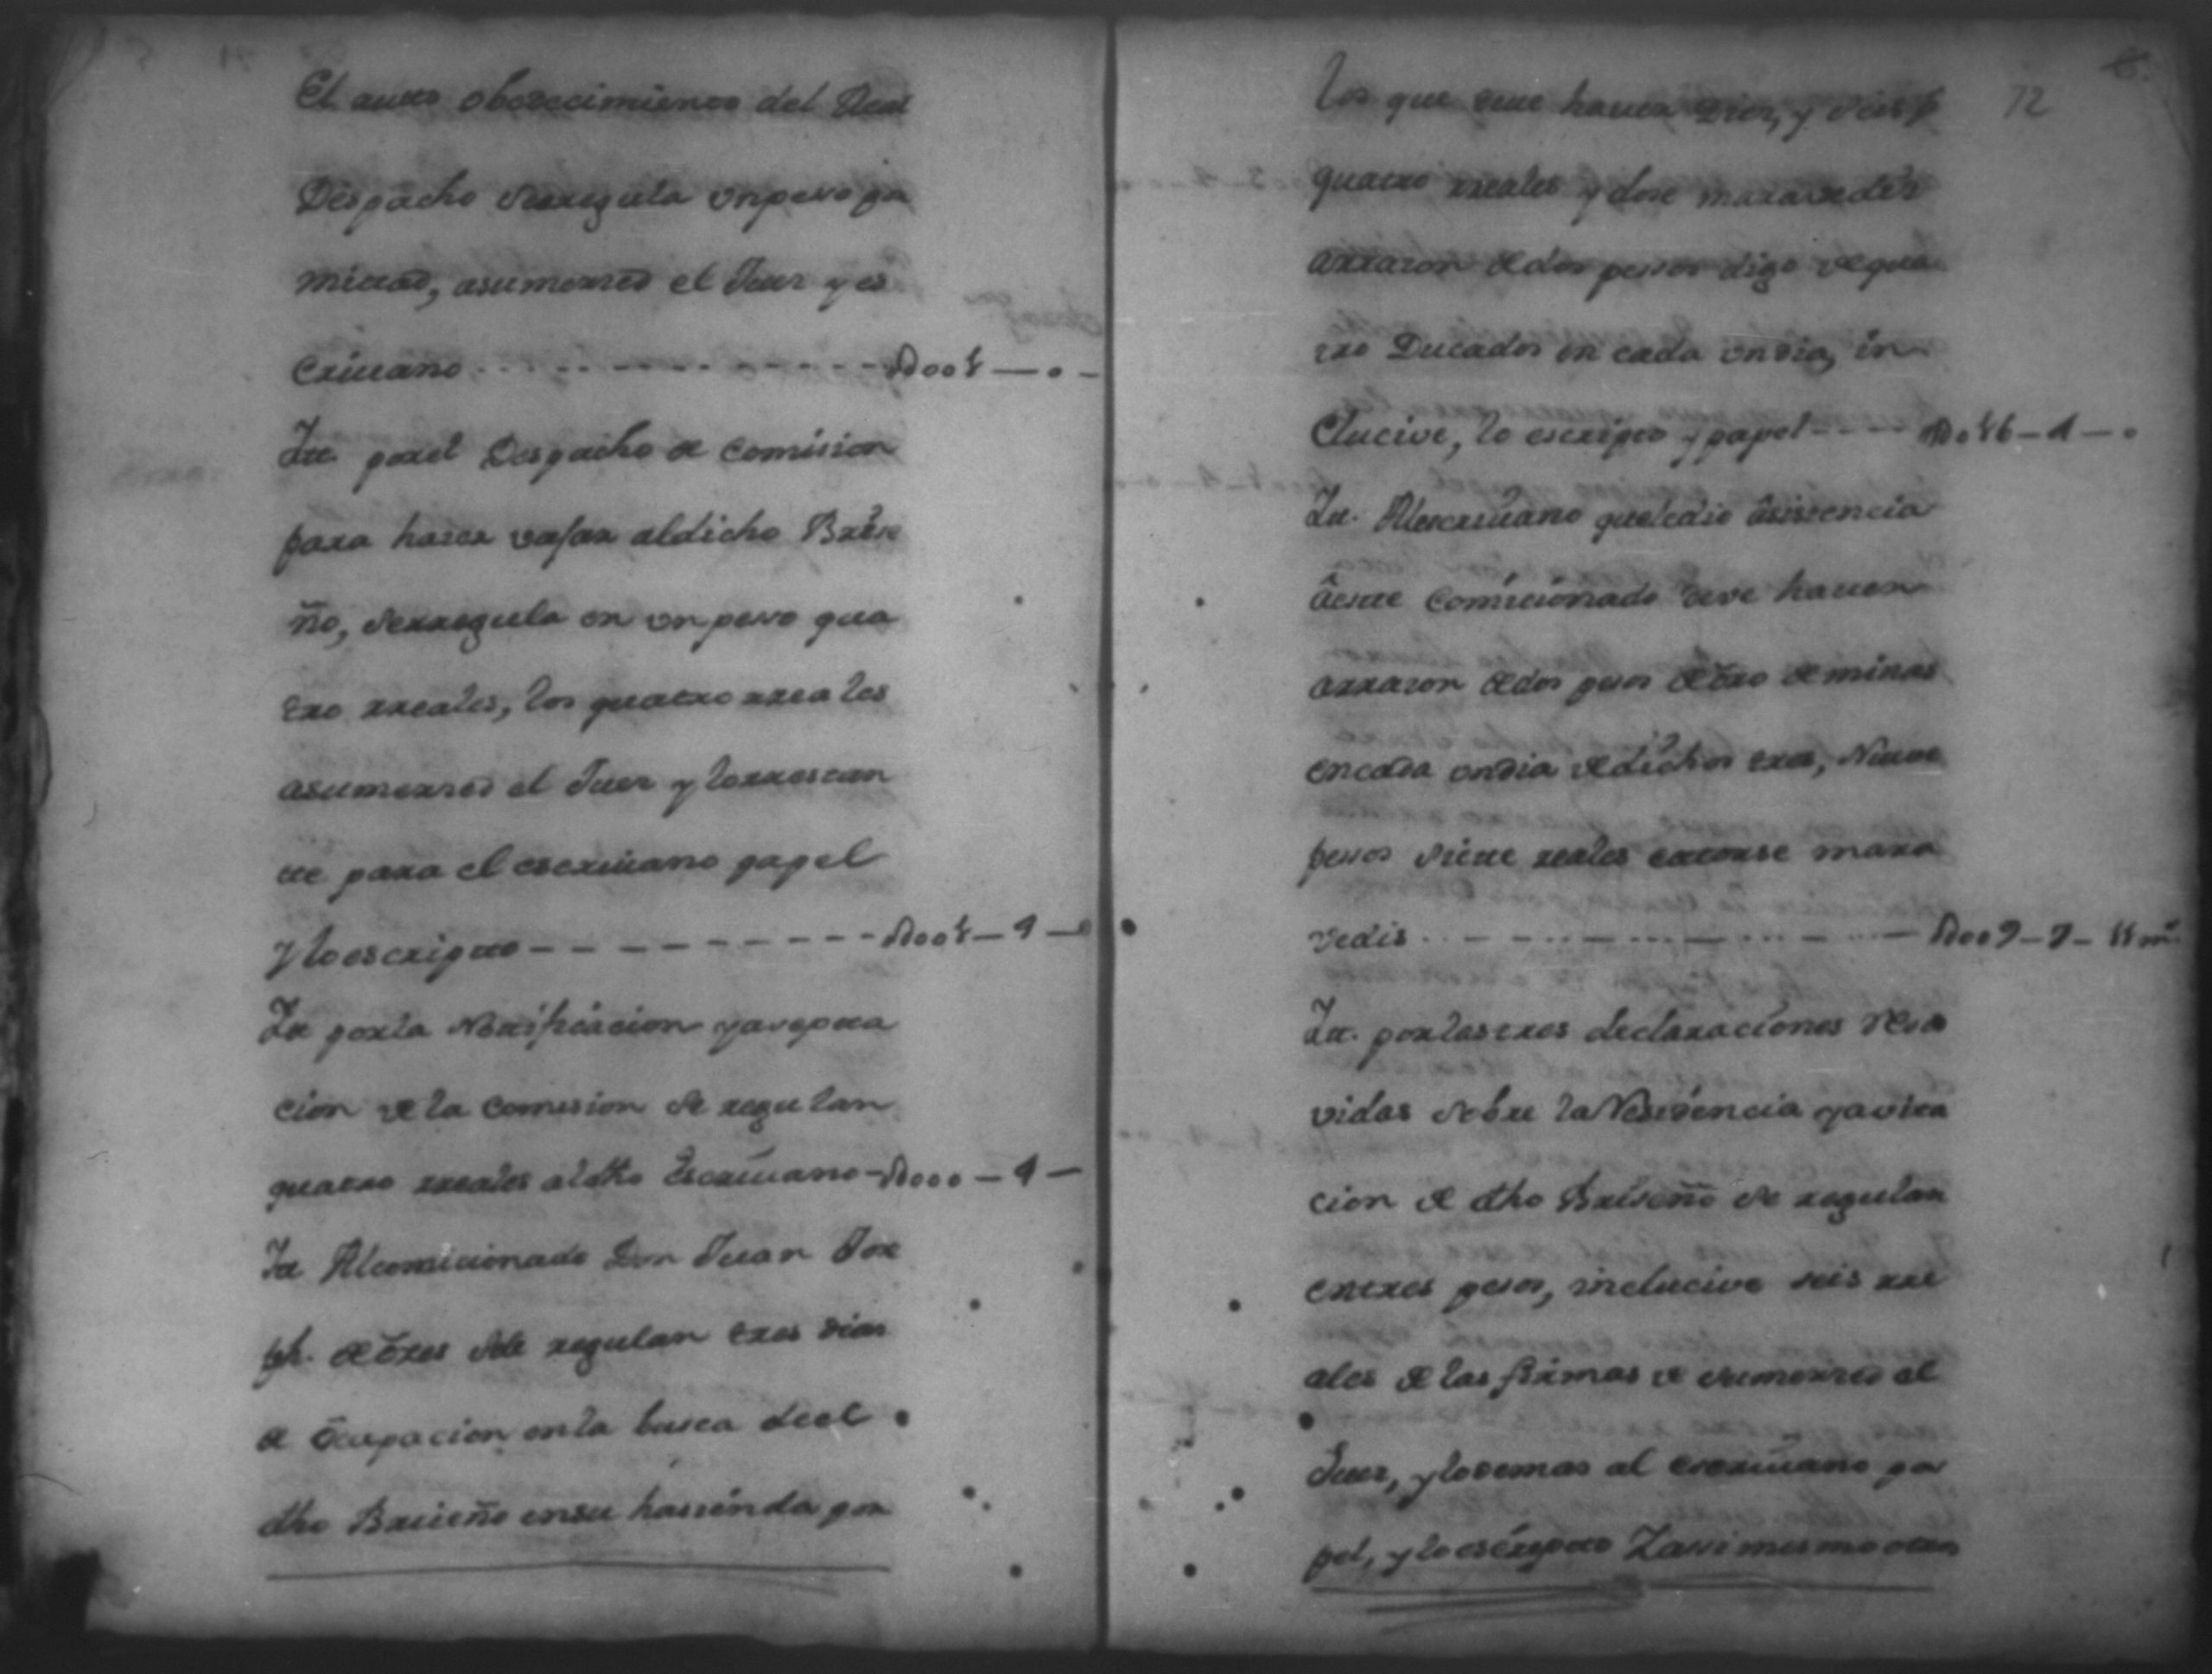 El auto obedecimiento del Real
Despacho se rregula un peso por
mitad, asumerced el Juez y es
crivano - - - - - - - - - - - D001 — 0 -
Itt. por el Despacho de Comision
para haser vajar al dicho Brise
ño, se rregula en un peso qua
tro rreales, los quatro rreales
asumerced el Juez y lo rrestan
te para el escrivano papel
y lo escripto - - - - - - - - - - D001 — 4 — 0
Itt por la Notificacion y asepta
cion de la Comision se regulan
quatro rreales al dho Escrivano - D000 — 4 —
Itt Al comicionado Don Juan Jose
ph. de se le regulan tres dias
de ocupacion en la busca de el
dho Briseño en su hasienda por
72
los que deve haver Dies, y seis p
quatro rreales y dose maravedis
arrazon de dos pesos digo de qua
tro Ducados en cada un dia, in
clucive, lo escripto y papel - - - - D016 — 4 — 0
Itt. Al escrivano que le dio asistencia
â este Comicionado deve haver
arrazon de dos pesos de oro de minas
en cada un dia de dichos tres, Nueve
pesos siete reales catorse mara
vedis - - - - - - - - - - D009 — 7 —
Itt. por las tres declaraciones reci
vidas sobre la Residencia y avita
cion de dho Briseño se regulan
en tres pesos, inclucive seis rre
ales de las firmas de sumerced el
Juez, y lo demas al escrivano pa
pel, y lo escripto Y assi mesmo otra